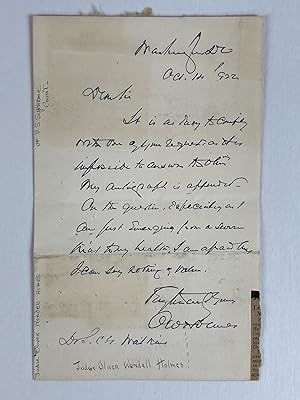 Washington DC
Oct. 14 1922
Dear Sir
It is as easy to comply
with one of your requests as it is
impossible to answer the other
My autograph is appended.
On the question, especially as I
am just emerging from a severe
trial to my health, I am afraid that
I can say nothing of value.
Very truly yours
OW Holmes
Dr.
Judge Oliver Wendell Holmes
Judge Oliver Wendell Holmes
of U.S. Supreme
Court -